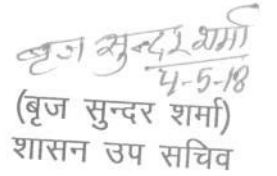 बृज सुन्दर शर्मा
4-5-18
(बृज सुन्दर शर्मा)
शासन उप सचिव